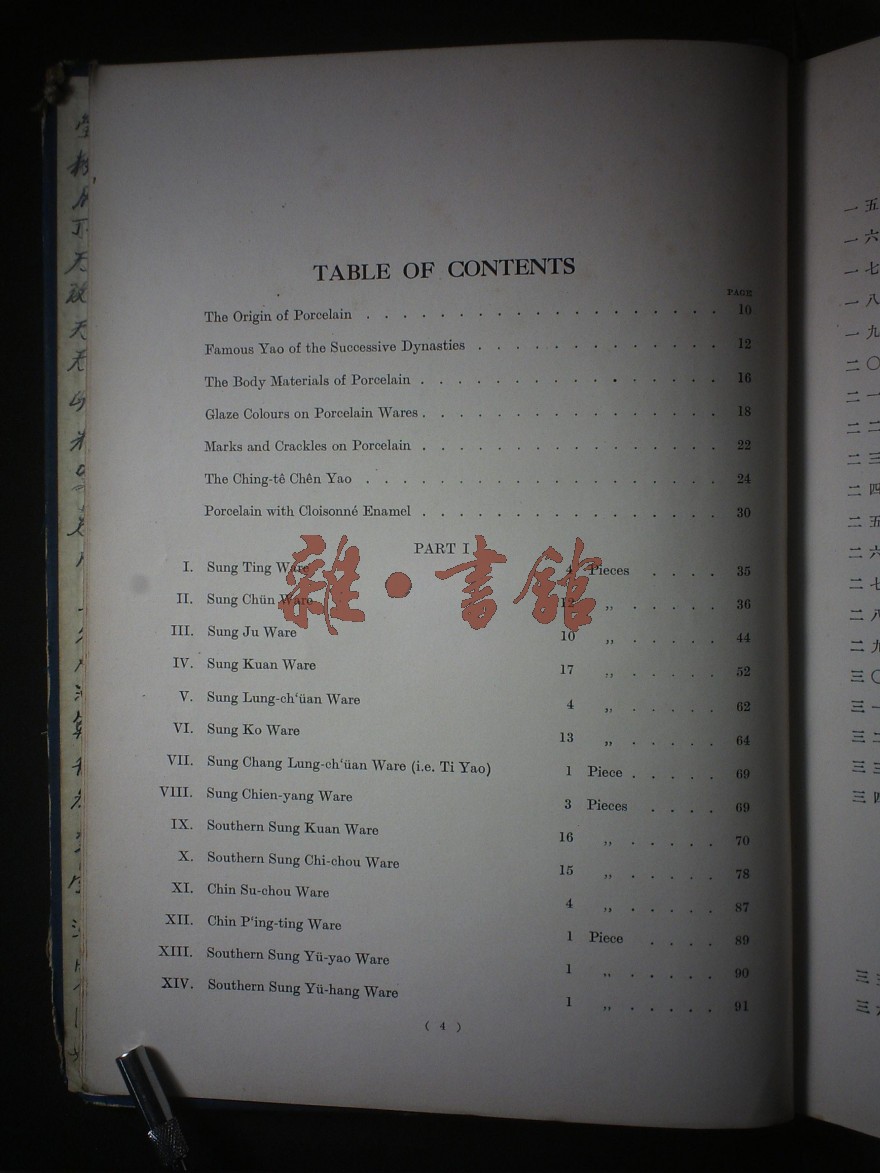 TABLE OF CONTENTS
PAGE
The Origin of Porcelain . . . . . . . . . . . . . . . . . . . 10
Famous Yao of the Successive Dynasties . . . . . . . . . . . . 12
The Body Materials of Porcelain . . . . . . . . . . . . . . . 16
Glaze Colours on Porcelain Wares . . . . . . . . . . . . . . 18
Marks and Crackles on Porcelain . . . . . . . . . . . . . . . 22
The Ching-tê Chên Yao . . . . . . . . . . . . . . . . . . . 24
Porcelain with Cloisonné Enamel . . . . . . . . . . . . . . . 30
PART I
I. Sung Ting Ware 4 Pieces . . . . 35
II. Sung Chün Ware 12 ,, . . . . . 36
III. Sung Ju Ware 10 ,, . . . . . 44
IV. Sung Kuan Ware 17 ,, . . . . . 52
V. Sung Lung-ch‘üan Ware 4 ,, . . . . . 62
VI. Sung Ko Ware 13 ,, . . . . . 64
VII. Sung Chang Lung-ch‘üan Ware (i.e. Ti Yao) 1 Piece . . . . . 69
VIII. Sung Chien-yang Ware 3 Pieces . . . . 69
IX. Southern Sung Kuan Ware 16 ,, . . . . . 70
X. Southern Sung Chi-chou Ware 15 ,, . . . . . 78
XI. Chin Su-chou Ware 4 ,, . . . . . 87
XII. Chin P‘ing-ting Ware 1 Piece . . . . 89
XIII. Southern Sung Yü-yao Ware 1 ,, . . . . . 90
XIV. Southern Sung Yü-hang Ware 1 ,, . . . . . 91
( 4 )
雜·書館
一五
一六
一七
一八
一九
二〇
二一
二二
二三
二四
二五
二六
二七
二八
二九
三〇
三一
三二
三三
三四